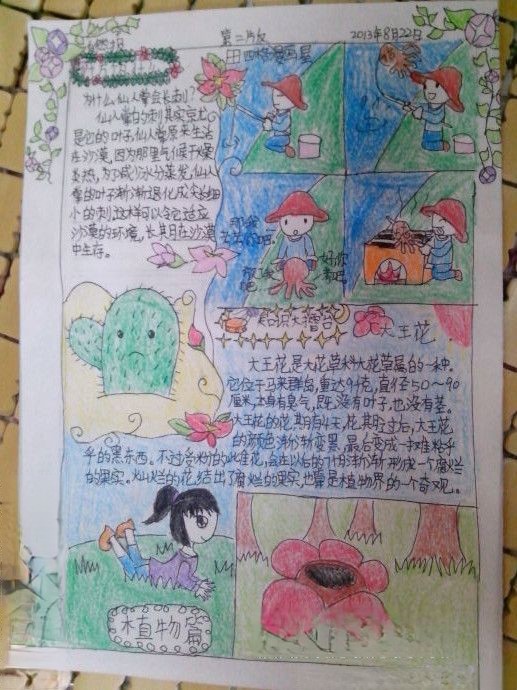 自然报
第二版
2013年8月22日
四格漫画屋
为什么仙人掌会长刺?
仙人掌的刺其实就
是它的叶子,仙人掌原来生活
在沙漠,因为那里气候干燥
炎热,为了减少水分蒸发,仙人
掌的叶子渐渐退化成尖长细
小的刺,这样可以令它适应
沙漠的环境,长其日在沙漠
中生存。
那我
放我
吧
好你
来吧
知识大播台
大王花
大王花是大花草科大花草属的一种。
它位于马来群岛,重达9仟克,直径50~90
厘米,本身有臭气,既没有叶子,也没有茎。
大王花的花期有4天,花其日过后,大王花
的颜色渐渐变黑,最后变成一堆粘乎
乎的黑东西。不过受粉的此隹花,会在以后的7个月渐渐形成一个腐烂
的果实。灿烂的花,结出了腐烂的果实,也算是植物界的一个奇观。
植物篇